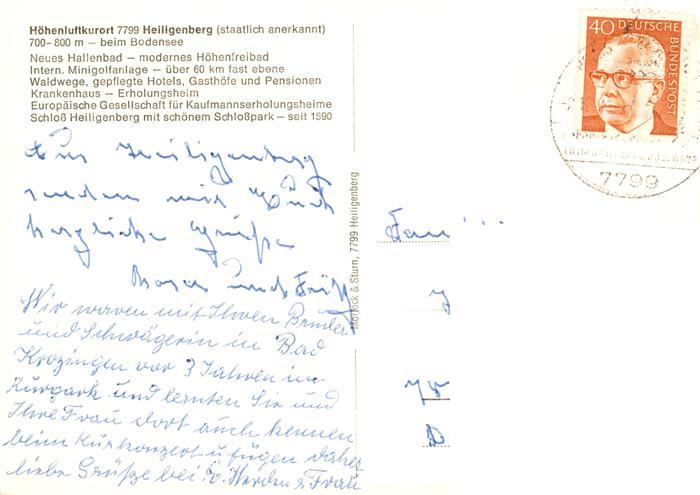 Höhenluftkurort 7799 Heiligenberg (staatlich anerkannt)
700-800 m — beim Bodensee
Neues Hallenbad — modernes Höhenfreibad
Intern. Minigolfanlage — über 60 km fast ebene
Waldwege, gepflegte Hotels, Gasthöfe und Pensionen
Krankenhaus — Erholungsheim
Europäische Gesellschaft für Kaufmannserholungsheime
Schloß Heiligenberg mit schönem Schloßpark — seit 1590
Aus Heiligenberg
senden wir Euch
herzliche Grüße
und Fritz
Wir waren mit Ihren Bruder
und Schwägerin in Bad
Krozingen vor 3 Jahren im
Kurpark und lernten Sie und
Ihre Frau dort auch kennen
beim Kurkonzert u. fügen daher
liebe Grüße bei & Frau
& Sturn, 7799 Heiligenberg
40 DEUTSCHE
BUNDESPOST
7799